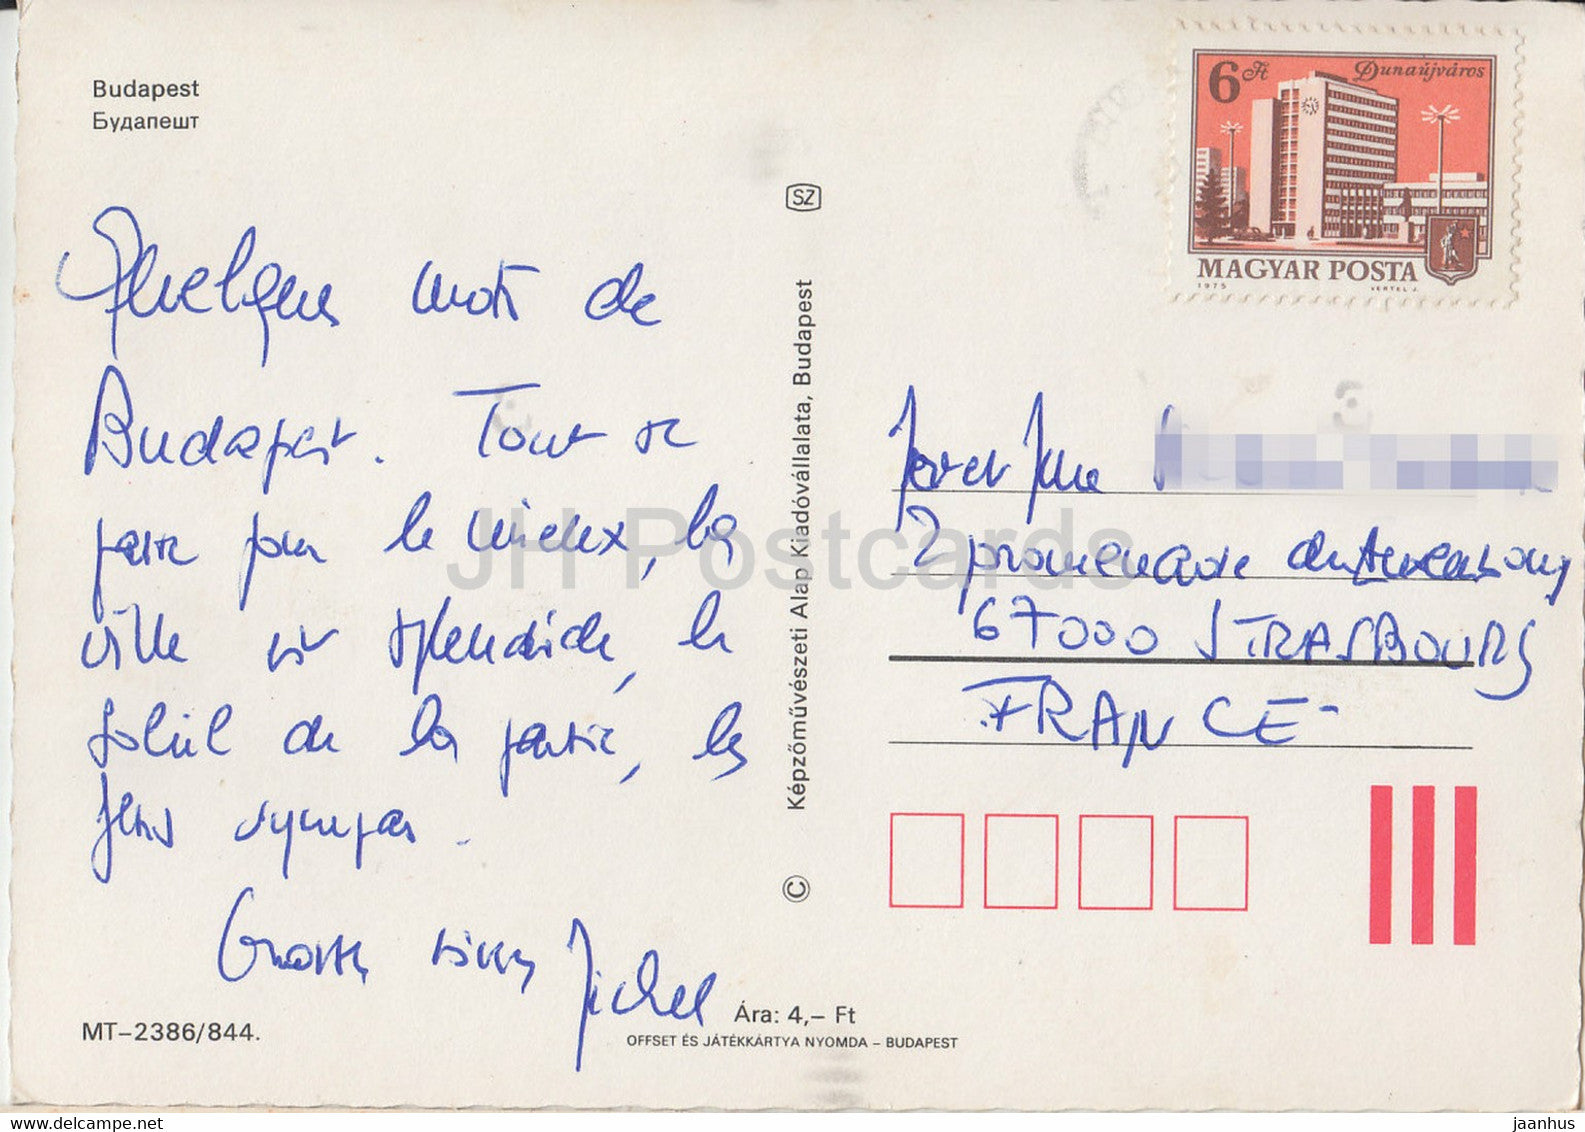 Budapest
Будапешт
Quelques mots de
Budapest. Tout se
passe pour le mieux, la
ville est splendide, le
soleil de la partie, les
gens sympas.
Grosses bises Michel
MT-2386/844.
Ára: 4,– Ft
OFFSET ÉS JÁTÉKKÁRTYA NYOMDA – BUDAPEST
SZ
Képzőművészeti Alap Kiadóvállalata, Budapest
©
6 Ft Dunaújváros
MAGYAR POSTA
1975 VERTEL J.
2 promenade
67000 STRASBOURG
FRANCE-
JH Postcards
www.delcampe.net
jaanhus